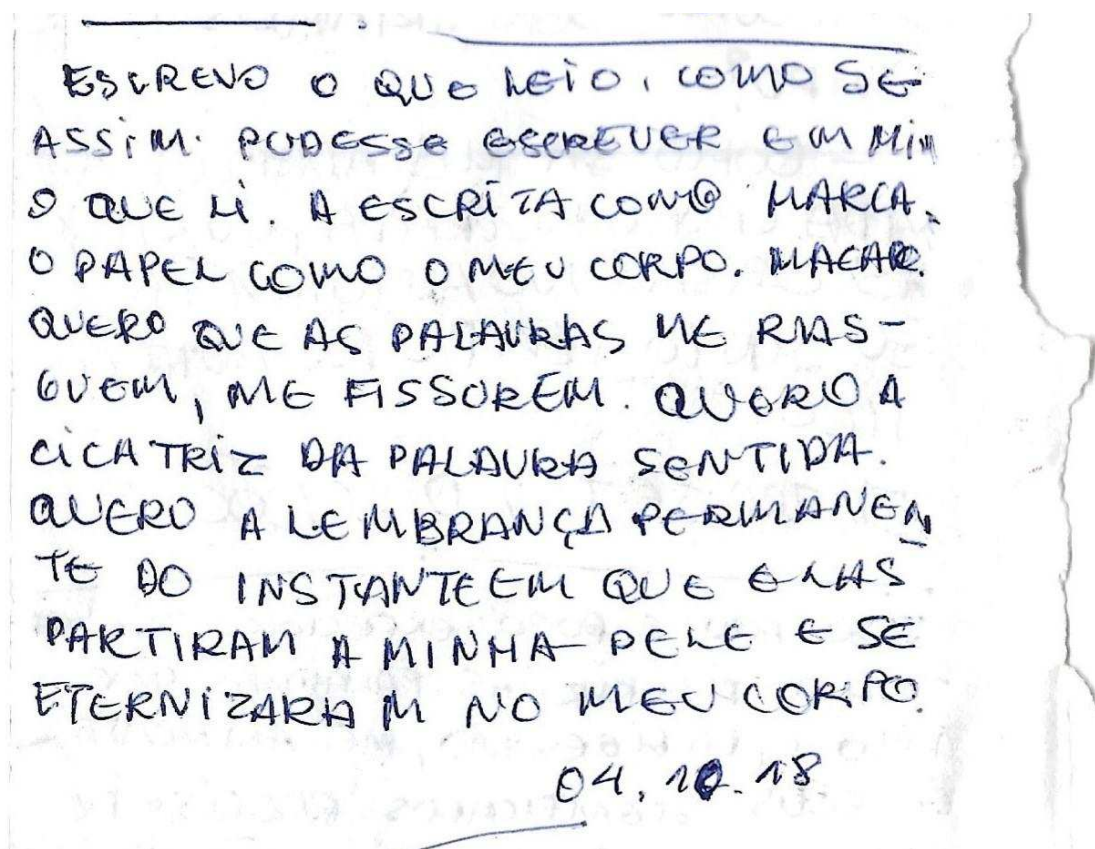 ESCREVO O QUE LEIO, COMO SE
ASSIM PUDESSE ESCREVER EM MIM
O QUE LI. A ESCRITA COMO MARCA.
O PAPEL COMO O MEU CORPO. MACAR.
QUERO QUE AS PALAVRAS ME RAS-
GUEM, ME FISSOREM. QUERO A
CICATRIZ DA PALAVRA SENTIDA.
QUERO A LEMBRANÇA PERMANEN
TE DO INSTANTE EM QUE ELAS
PARTIRAM A MINHA PELE E SE
ETERNIZARAM NO MEU CORPO.
04.10.18